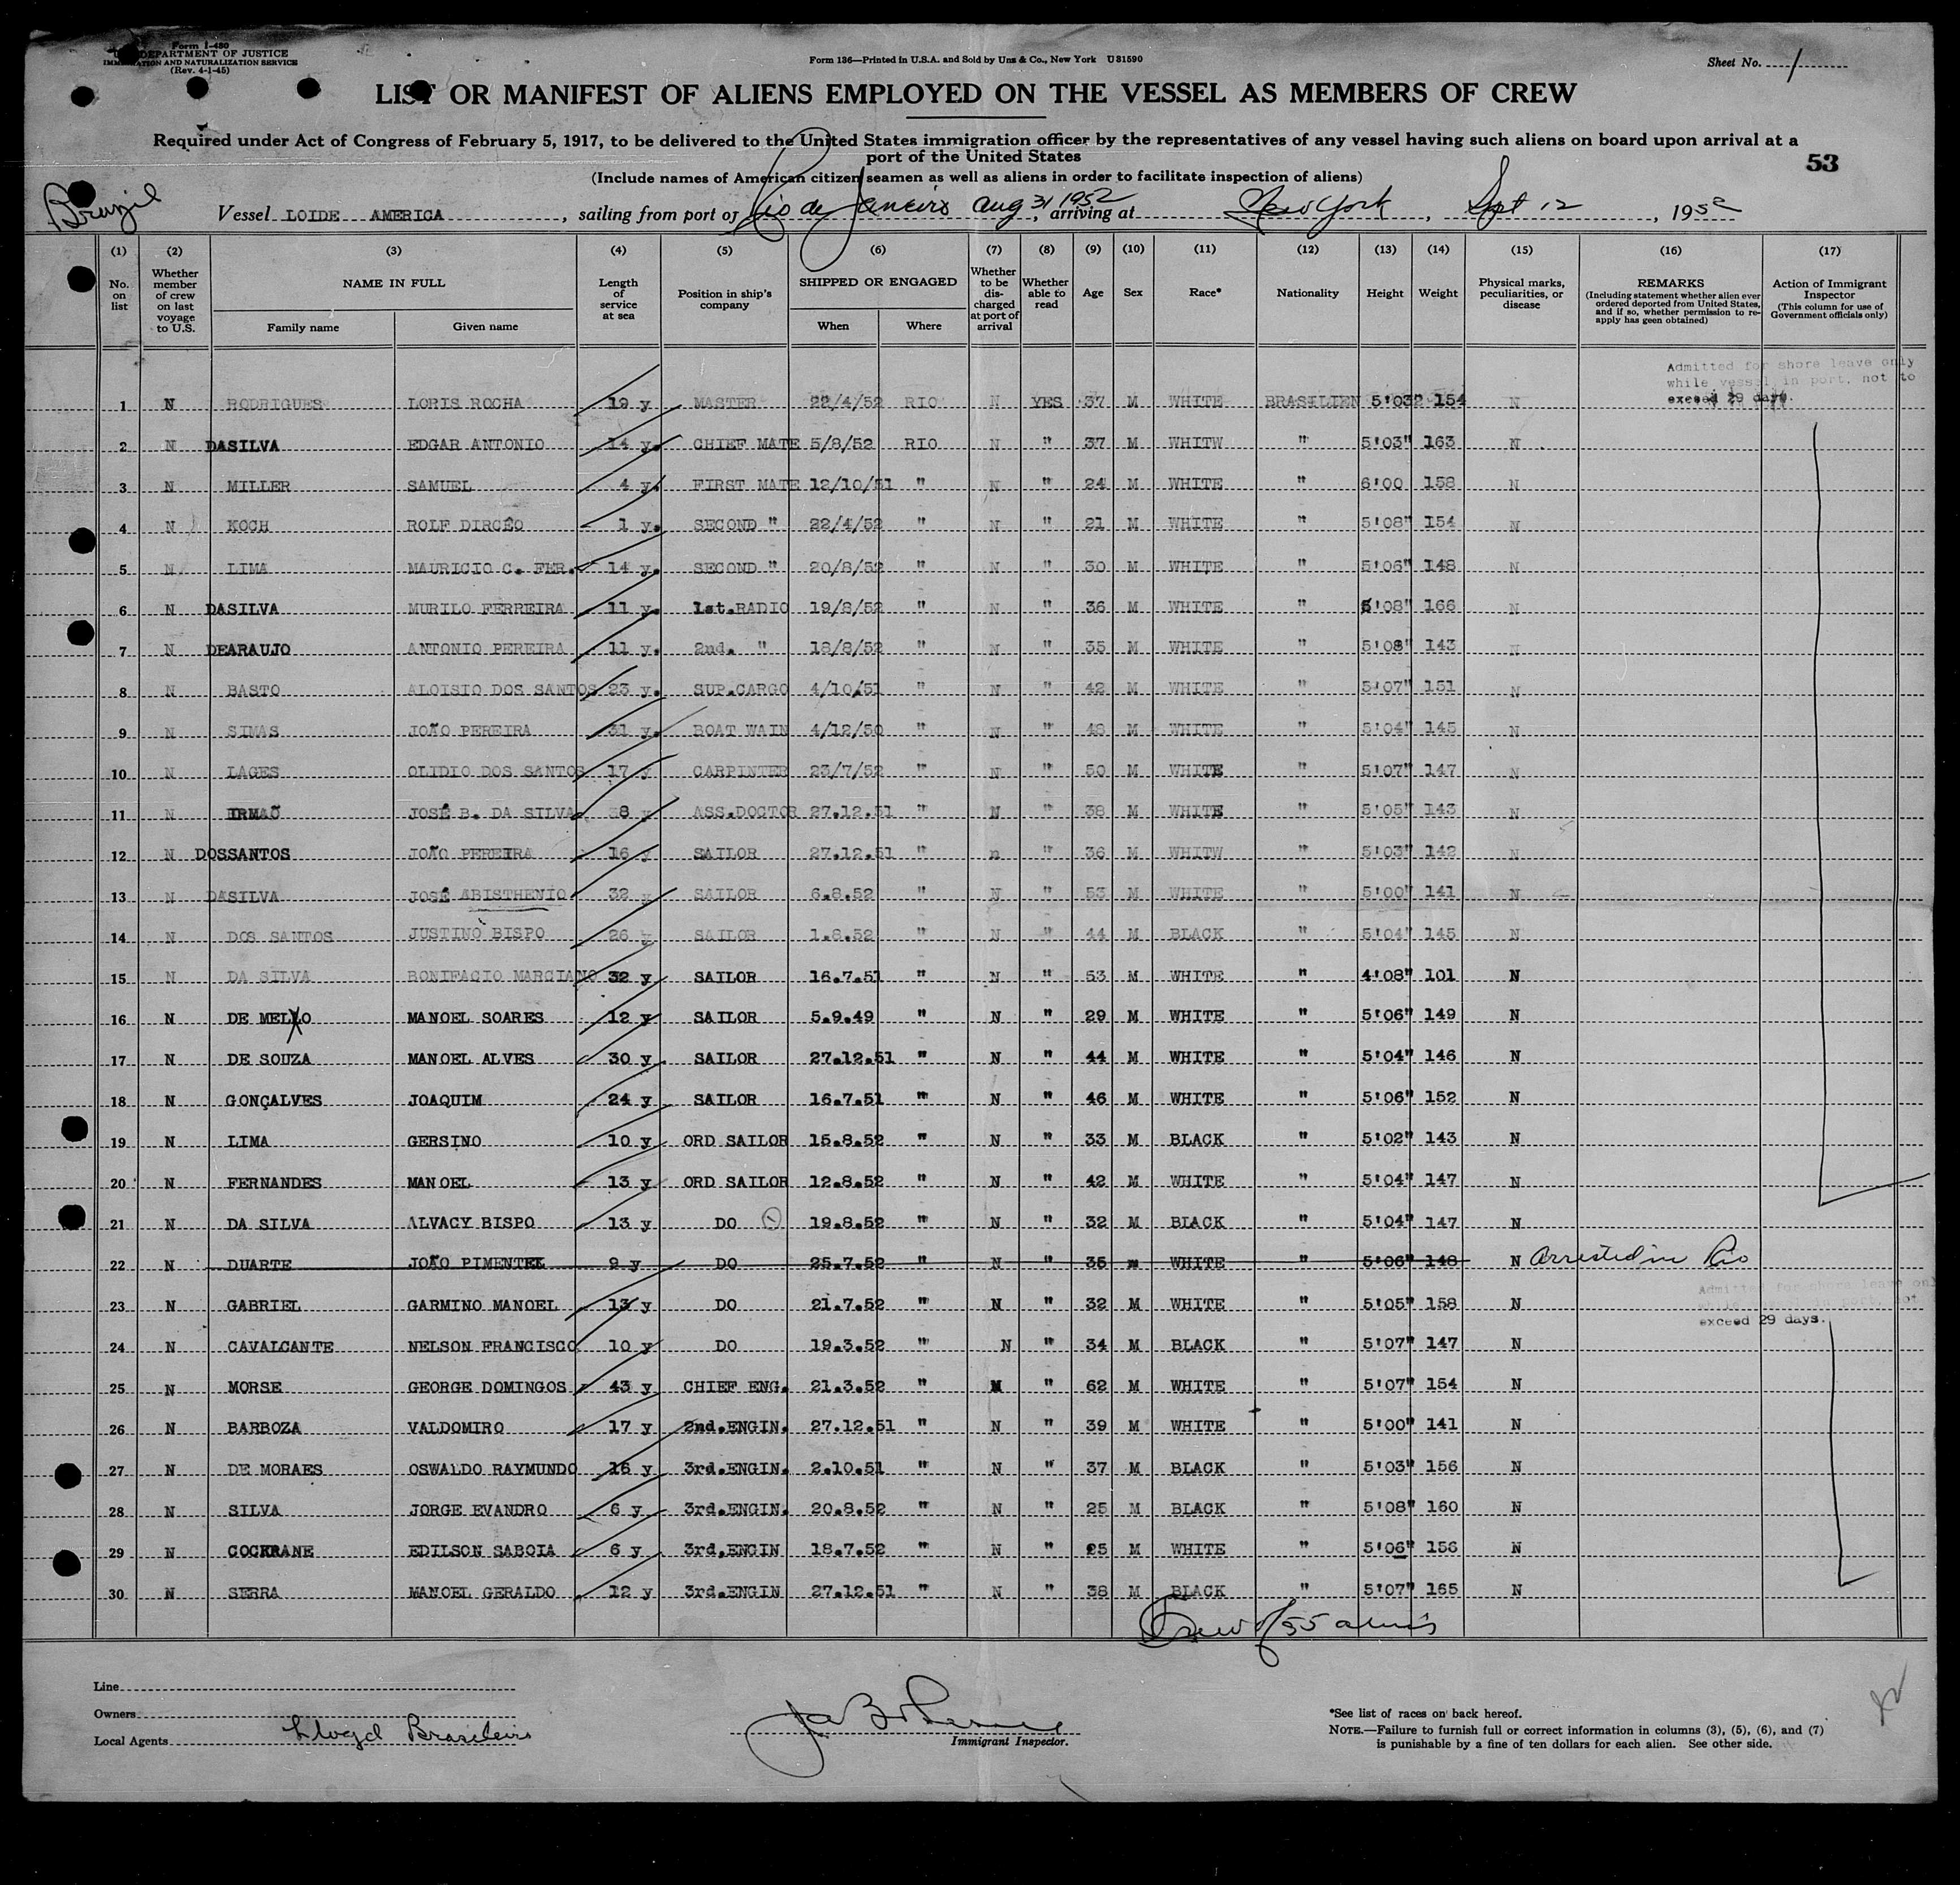 Form I-480
U. S. DEPARTMENT OF JUSTICE
IMMIGRATION AND NATURALIZATION SERVICE
(Rev. 4-1-45)
Form 136—Printed in U.S.A. and Sold by Unz & Co., New York U 31590
Sheet No. 1
LIST OR MANIFEST OF ALIENS EMPLOYED ON THE VESSEL AS MEMBERS OF CREW
Required under Act of Congress of February 5, 1917, to be delivered to the United States immigration officer by the representatives of any vessel having such aliens on board upon arrival at a
port of the United States
53
(Include names of American citizen seamen as well as aliens in order to facilitate inspection of aliens)
Brazil
Vessel LOIDE AMERICA, sailing from port of Rio de Janeiro Aug 31 1952, arriving at New York, Sept 12, 1952
(1) (2) (3) (4) (5) (6) (7) (8) (9) (10) (11) (12) (13) (14) (15) (16) (17)
No. on list
Whether member of crew on last voyage to U.S.
NAME IN FULL
Family name
Given name
Length of service at sea
Position in ship's company
SHIPPED OR ENGAGED
When
Where
Whether to be discharged at port of arrival
Whether able to read
Age
Sex
Race*
Nationality
Height
Weight
Physical marks, peculiarities, or disease
REMARKS
(Including statement whether alien ever ordered deported from United States, and if so, whether permission to re-apply has geen obtained)
Action of Immigrant Inspector
(This column for use of Government officials only)
Admitted for shore leave only
while vessel in port, not to
exceed 29 days.
1 N RODRIGUES LORIS ROCHA 19 y MASTER 22/4/52 RIO N YES 37 M WHITE BRASILIEN 5'032 154 N
2 N DASILVA EDGAR ANTONIO 14 y. CHIEF MATE 5/8/52 RIO N " 37 M WHITW " 5'03" 163 N
3 N MILLER SAMUEL 4 y. FIRST MATE 12/10/51 " N " 24 M WHITE " 6'00 158 N
4 N KOCH ROLF DIRCÊO 1 y. SECOND " 22/4/52 " N " 21 M WHITE " 5'08" 154 N
5 N LIMA MAURICIO C. FER. 14 y. SECOND " 20/8/52 " N " 30 M WHITE " 5'06" 148 N
6 N DASILVA MURILO FERREIRA 11 y. 1st.RADIO 19/8/52 " N " 36 M WHITE " 5'08" 166 N
7 N DEARAUJO ANTONIO PEREIRA 11 y. 2nd. " 18/8/52 " N " 35 M WHITE " 5'08" 143 N
8 N BASTO ALOISIO DOS SANTOS 23 y. SUP.CARGO 4/10/51 " N " 42 M WHITE " 5'07" 151 N
9 N SIMAS JOÃO PEREIRA 31 y. BOAT WAIN 4/12/50 " N " 48 M WHITE " 5'04" 145 N
10 N LAGES OLIDIO DOS SANTOS 17 y CARPINTER 23/7/52 " N " 50 M WHITE " 5'07" 147 N
11 N IRMAÕ JOSÉ B. DA SILVA 38 y ASS.DOCTOR 27.12.51 " N " 38 M WHITE " 5'05" 143 N
12 N DOSSANTOS JOÃO PEREIRA 16 y SAILOR 27.12.51 " n " 36 M WHITW " 5'03" 142 N
13 N DASILVA JOSÉ ABISTHENIO 32 y SAILOR 6.8.52 " N " 53 M WHITE " 5'00" 141 N
14 N DOS SANTOS JUSTINO BISPO 26 y SAILOR 1.8.52 " N " 44 M BLACK " 5'04" 145 N
15 N DA SILVA BONIFACIO MARCIANO 32 y SAILOR 16.7.51 " N " 53 M WHITE " 4'08" 101 N
16 N DE MELLO MANOEL SOARES 12 y SAILOR 5.9.49 " N " 29 M WHITE " 5'06" 149 N
17 N DE SOUZA MANOEL ALVES 30 y. SAILOR 27.12.51 " N " 44 M WHITE " 5'04" 146 N
18 N GONÇALVES JOAQUIM 24 y SAILOR 16.7.51 " N " 46 M WHITE " 5'06" 152 N
19 N LIMA GERSINO 10 y ORD SAILOR 15.8.52 " N " 33 M BLACK " 5'02" 143 N
20 N FERNANDES MANOEL 13 y ORD SAILOR 12.8.52 " N " 42 M WHITE " 5'04" 147 N
21 N DA SILVA ALVACY BISPO 13 y DO 19.8.52 " N " 32 M BLACK " 5'04" 147 N
22 N DUARTE JOÃO PIMENTEL 9 y DO 25.7.52 " N " 35 m WHITE " 5'06" 148 N Arrested in Rio
Admitted for shore leave only
while vessel in port, not
exceed 29 days.
23 N GABRIEL GARMINO MANOEL 13 y DO 21.7.52 " N " 32 M WHITE " 5'05" 158 N
24 N CAVALCANTE NELSON FRANCISCO 10 y DO 19.3.52 " N " 34 M BLACK " 5'07" 147 N
25 N MORSE GEORGE DOMINGOS 43 y CHIEF ENG. 21.3.52 " N " 62 M WHITE " 5'07" 154 N
26 N BARBOZA VALDOMIRO 17 y 2nd.ENGIN. 27.12.51 " N " 39 M WHITE " 5'00" 141 N
27 N DE MORAES OSWALDO RAYMUNDO 16 y 3rd.ENGIN. 2.10.51 " N " 37 M BLACK " 5'03" 156 N
28 N SILVA JORGE EVANDRO 6 y 3rd.ENGIN. 20.8.52 " N " 25 M BLACK " 5'08" 160 N
29 N COCKRANE EDILSON SABOIA 6 y 3rd.ENGIN 18.7.52 " N " 25 M WHITE " 5'06" 156 N
30 N SERRA MANOEL GERALDO 12 y 3rd.ENGIN 27.12.51 " N " 38 M BLACK " 5'07" 165 N
Crew of 55 aliens
Line
Owners
Local Agents Lloyd Brasileiro
Immigrant Inspector.
*See list of races on back hereof.
NOTE.—Failure to furnish full or correct information in columns (3), (5), (6), and (7)
is punishable by a fine of ten dollars for each alien. See other side.